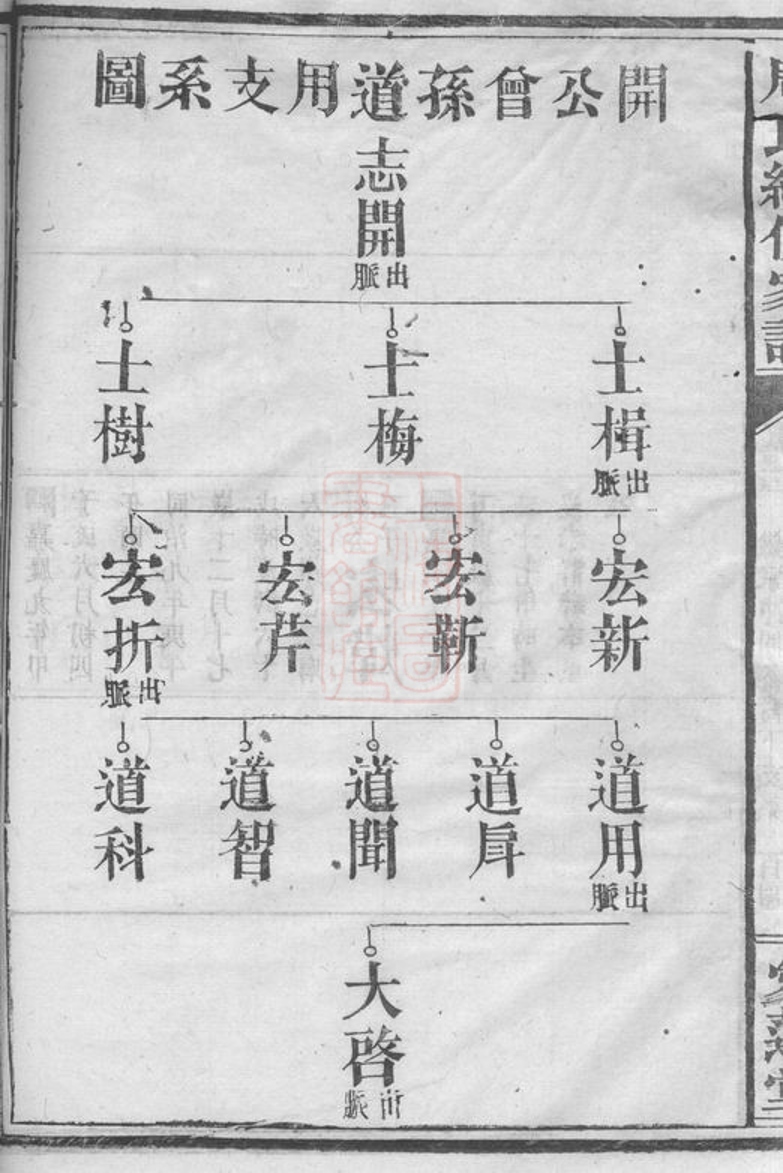 開公曾孫道用支系圖
志開
出脈
士楫
出脈
士梅
士樹
宏新
宏靳
宏芹
宏折
出脈
道用
出脈
道聞
道智
道科
大啓
脈